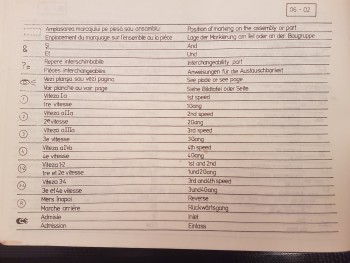 06 - 02
Amplasarea marcajului pe piesă sau ansamblu Position of marking on the assembly or part
Emplacement du marquage sur l'ensemble ou la pièce Lage der Markierung am Teil oder an der Baugruppe
& Și And
Et Und
Repere interschimbabile Interchangeability part
Pièces interchangeables Anweisungen für die Austauschbarkeit
Vezi planșa sau vezi pagina See plate or see page
Voir planche ou voir page Siehe Bildtafel oder Seite
1 Viteza I a 1st speed
1re vitesse 1Gang
2 Viteza a II a 2nd speed
2e vitesse 2Gang
3 Viteza a III a 3rd speed
3e vitesse 3Gang
4 Viteza a IV a 4th speed
4e vitesse 4Gang
Viteza 1-2 1st and 2nd
1re et 2e vitesse 1und2Gang
Viteza 3-4 3rd and 4th speed
3e et 4e vitesse 3und4Gang
R Mers înapoi Reverse
Marche arrière Rückwärtsgang
Admisie Inlet
Admission Einlass